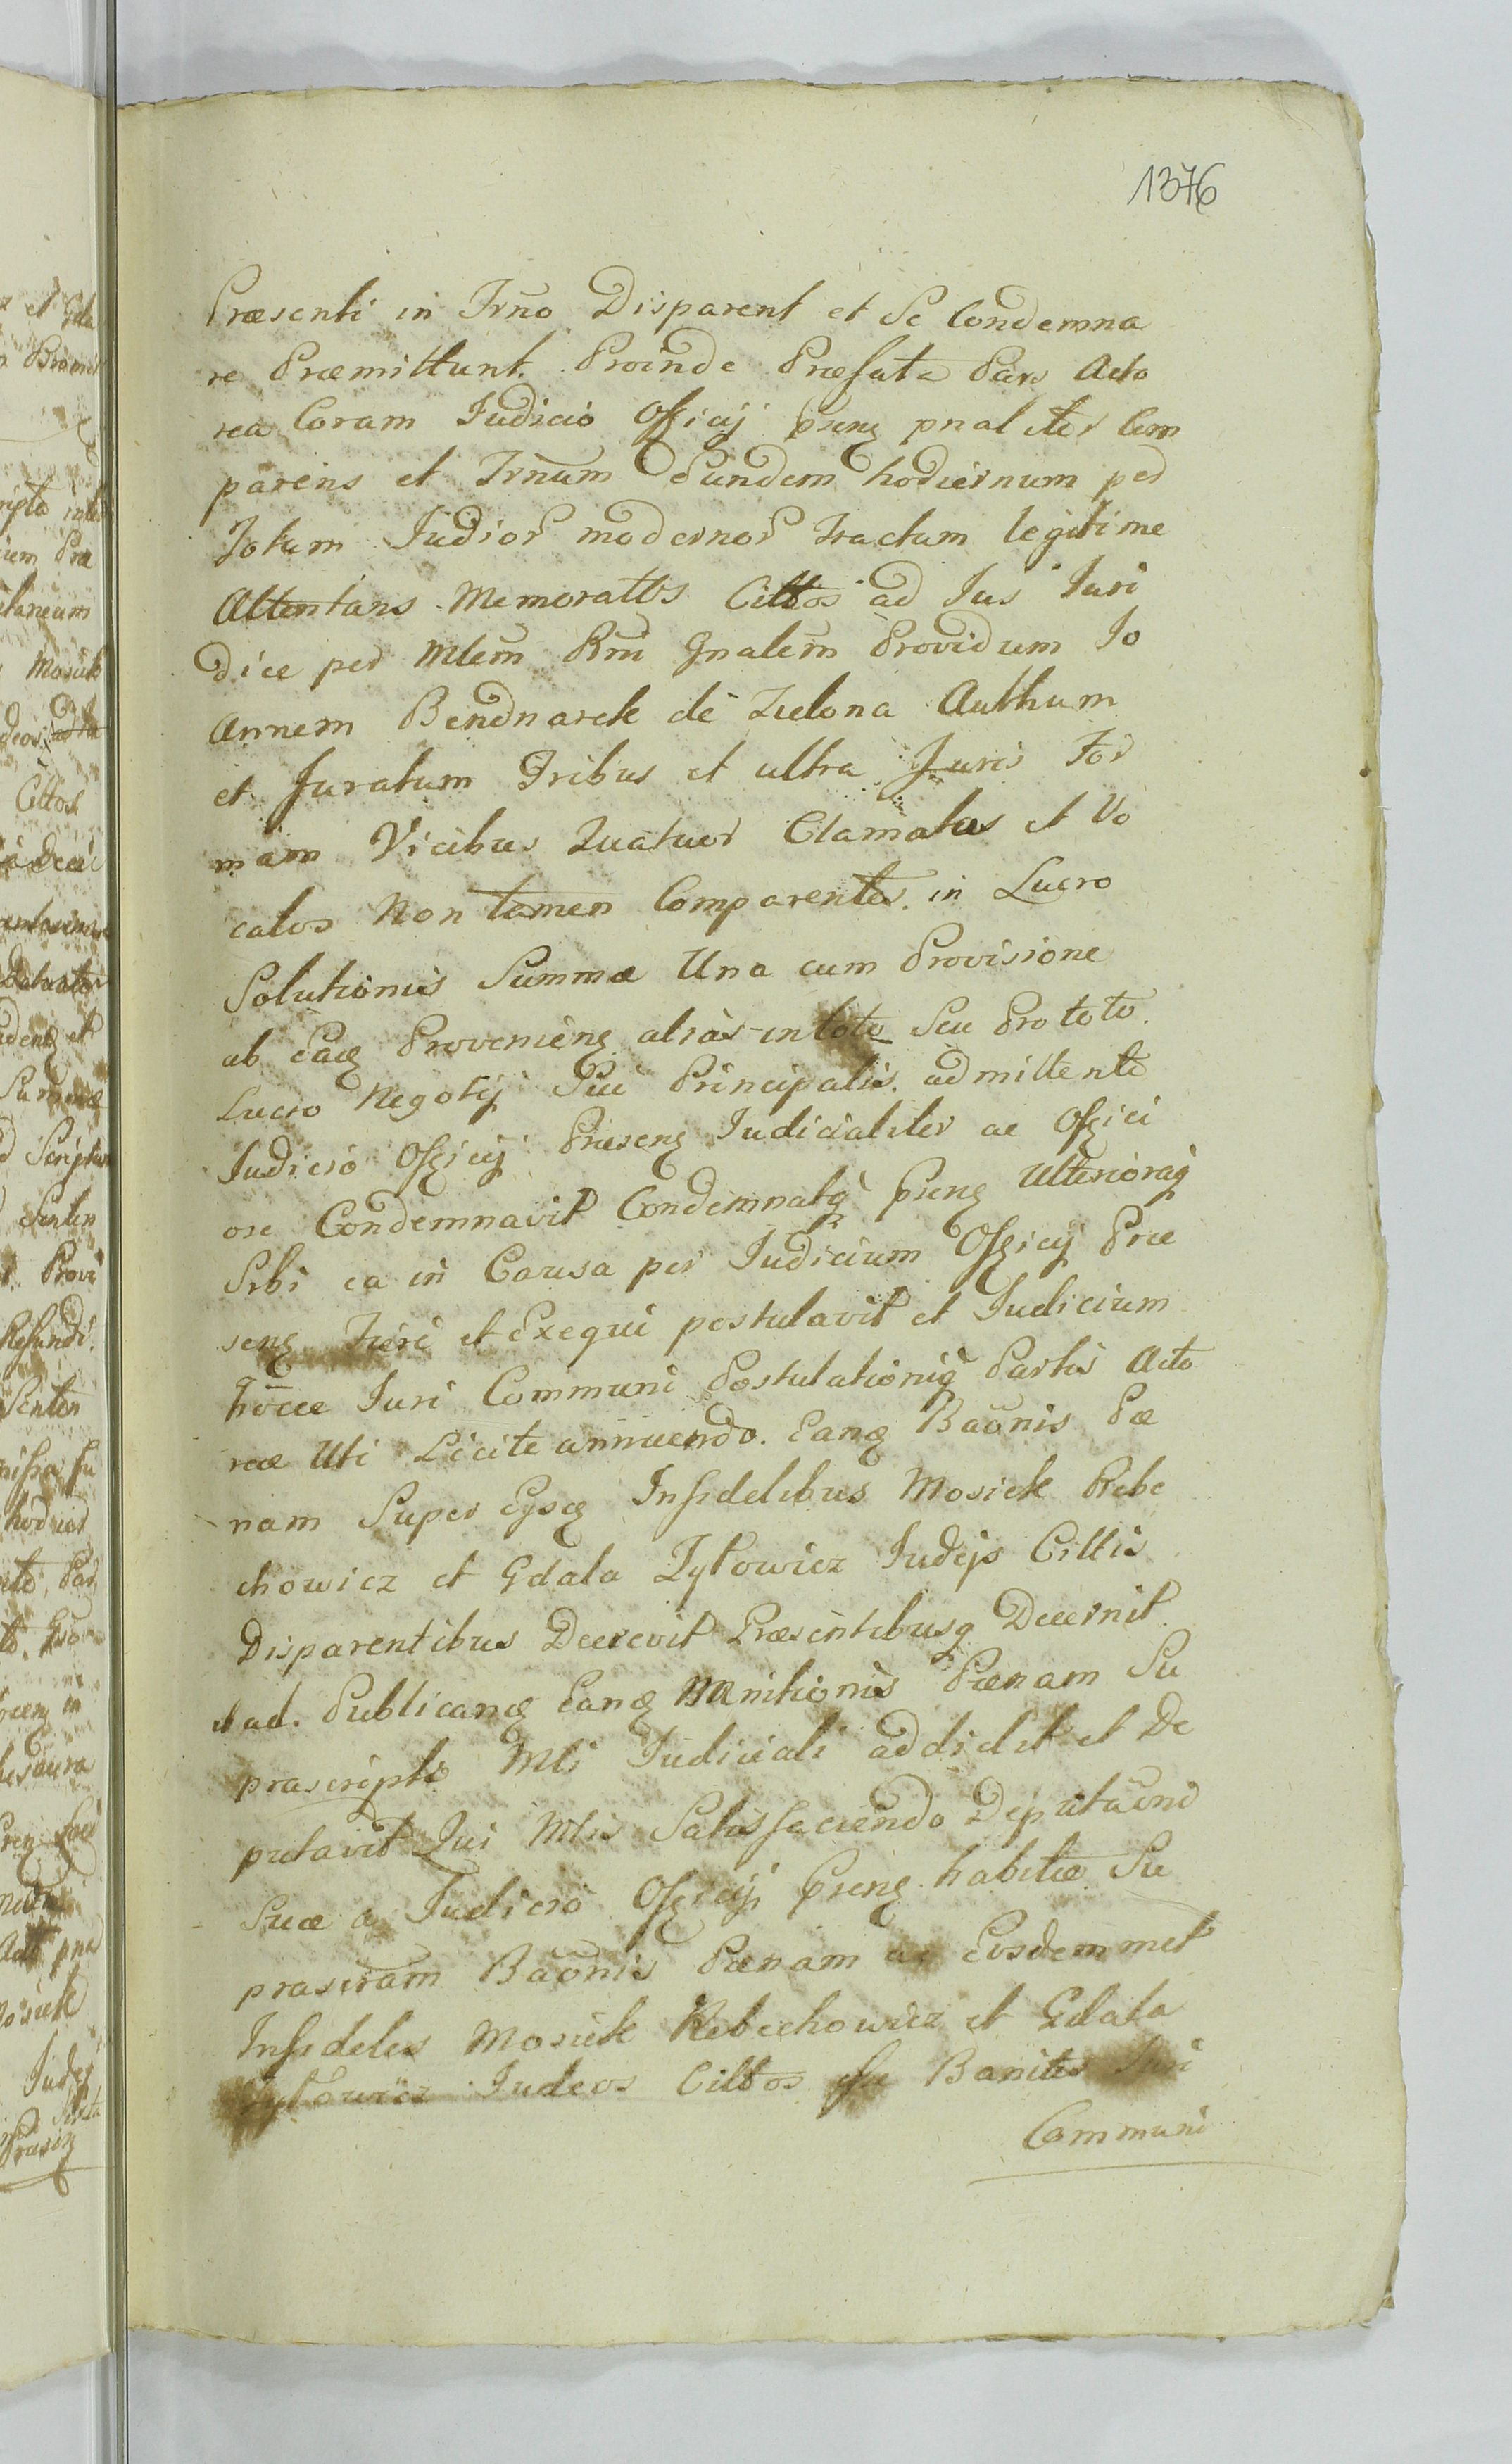 1376
Præsenti in Trno Disparent et Se Condemna
re Præmittunt. Proinde Præfata Pars Acto
rea Coram Judicio Officij Pseng pnaliter Com
parens et Trnum Eundem hodiernum per
Totum Judior modernor tractum legitime
Attentans Memorattos Cittos ad Jus Juri
dice per Mlem Rni Gnalem Providum Jo
Annem Bendnarek de Zielona Authum
et Juratum Tribus et ultra Juris For
mam Vicibus Quatuor Clamatos et Vo
catos Non tamen Comparentes. in Lucro
Solutionis Summæ Una cum Provisione
ab Eaq Proveniēng alias in toto Seu Pro toto
Lucro Negotij Sui Principalis. admittente
Judicio Officij Præseng Judicialiter ac Offici
ose Condemnavit Condemnatq Pseng Ulterioraq
Sibi ea in Causa per Judicium Officij Præ
seng Fieri et Exequi postulavit et Judicium
hocce Juri Communi Postulationiq Partis Acto
reæ Uti Licite annuendo. Eanq Baōnis Pæ
nam Super Ejsq Infidelibus Mosiek Rebe
chowicz et Gdala Zytowicz Judejs Cittis
Disparentibus Decrevit Præsentibusq Decernit
et ad. Publicanq Eanq Bannitionis Pænam Su
prascripto Mli Judiciali addidit et De
putavit Qui Mlis Satisfaciendo Deputaōni
Suæ a Judicio Officij Pseng habitæ Su
prascram Baōnis Pænam ac Eosdemmet
Infideles Mosiek Rebechowicz et Gdala
Zytowicz Judeos Cittos esse Banitos Juri
Communi